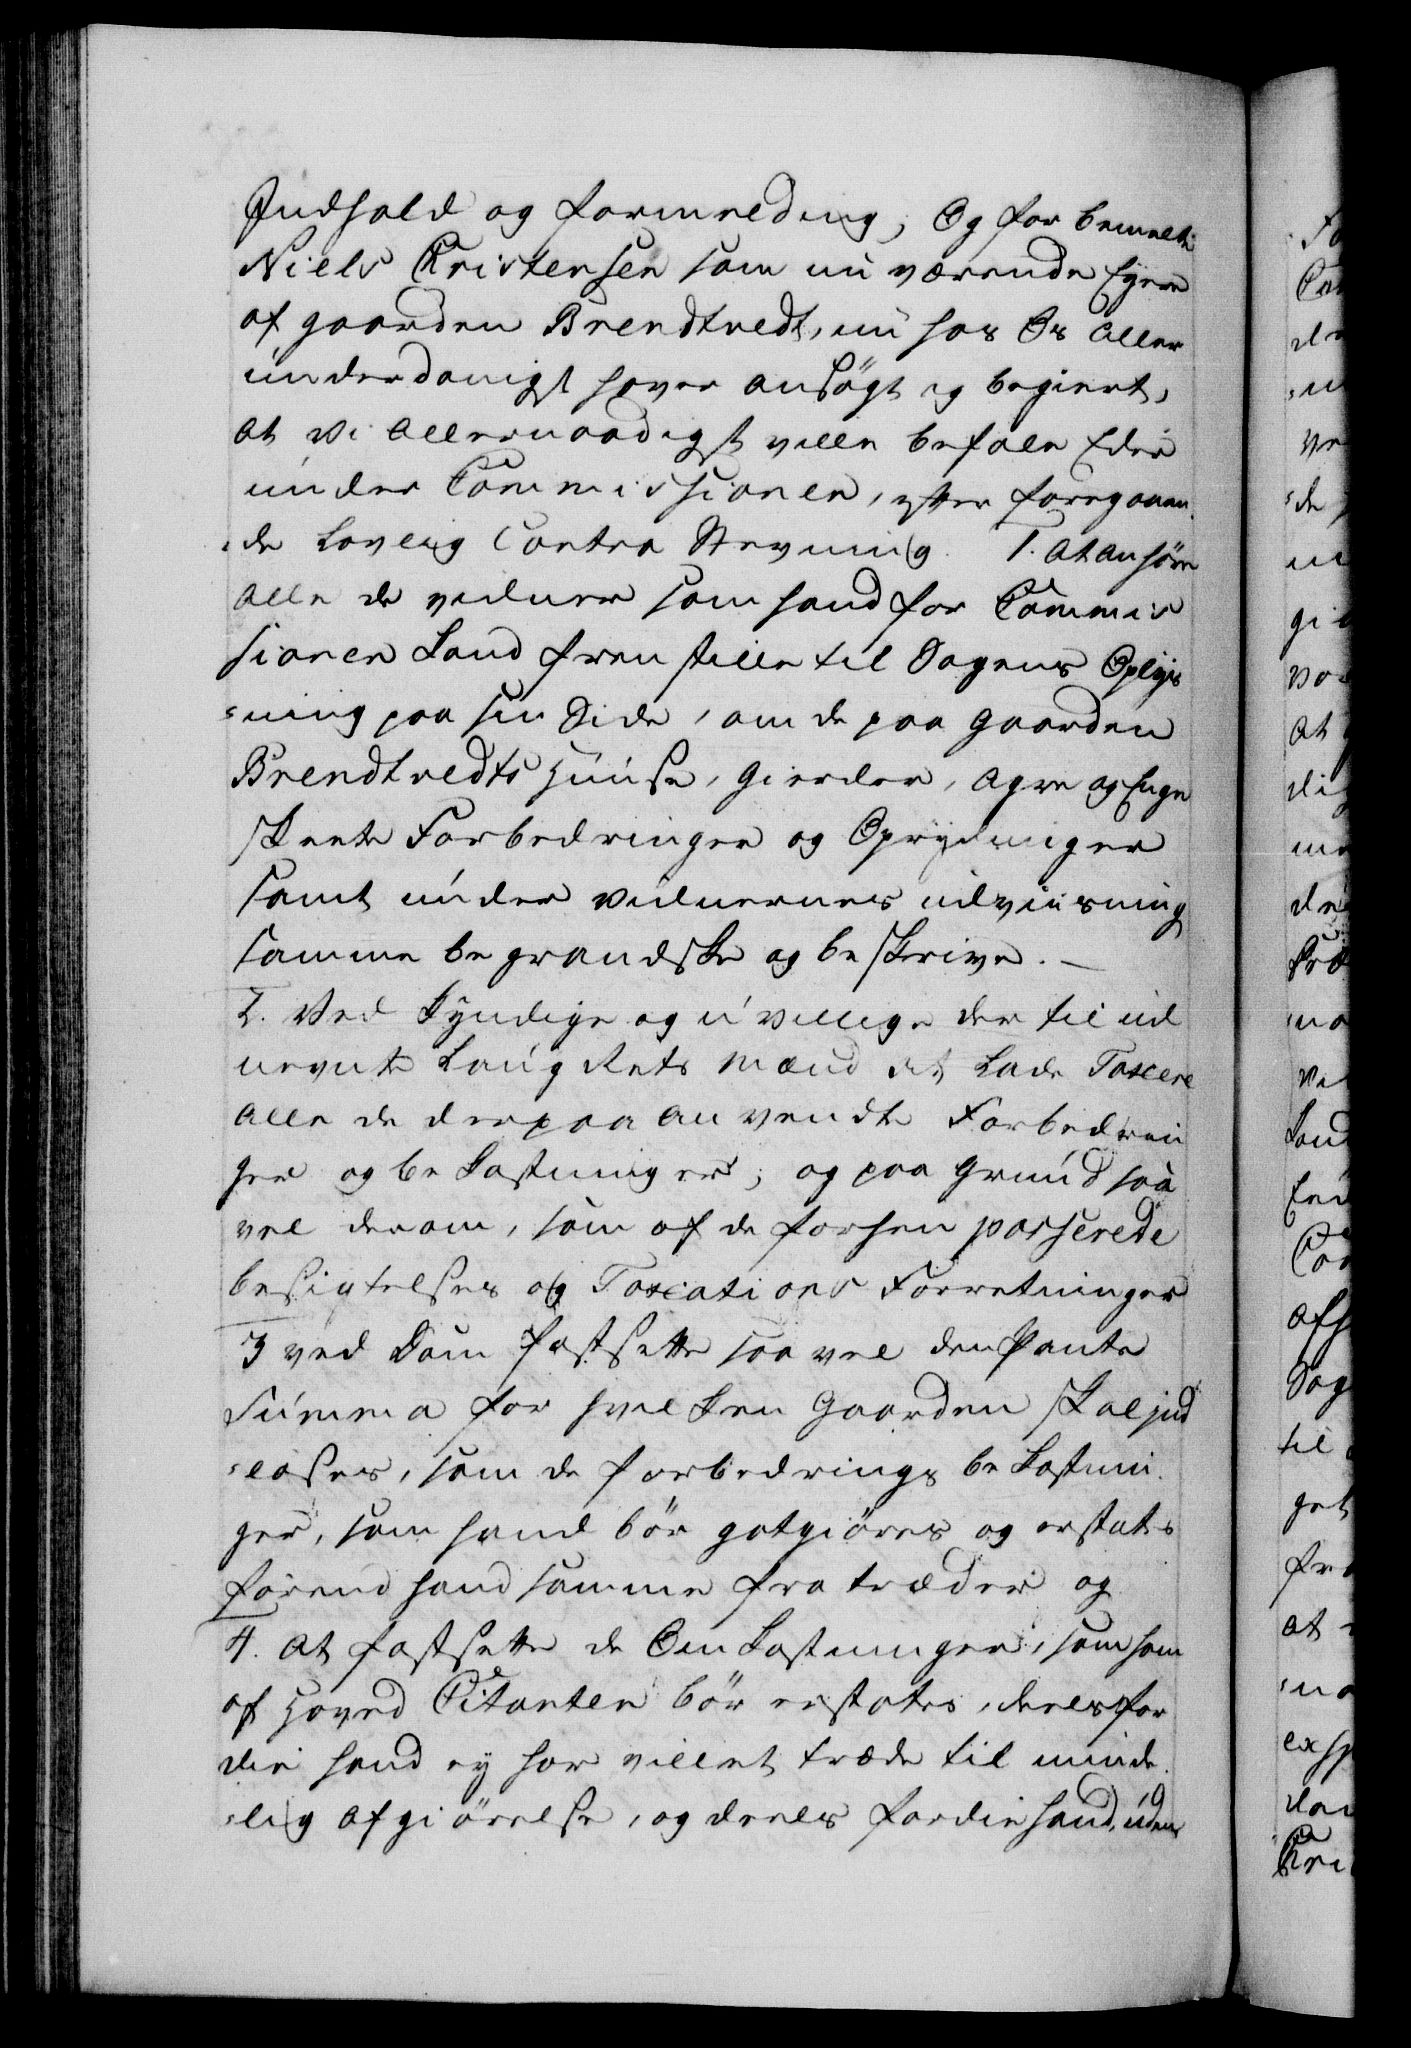 Indhold og formelding; Og for bemelte
Niels Christensen som nu værende Eyere
af gaarden Brendtvedt, nu hos Os aller
underdanigst haver ansögt og begiert,
at Vi allernaadigst ville befale Eder
under Commissionen, efter foregaaen
de Lovlig Contra Stevning. 1. At anhöre
alle de vidner som hand for Commis
sionen kand fremstille til Sagens Oplys
ning paa sin Side, om de paa gaarden
Brendtvedts Huuse, gierder, agre og Enge
skeete Forbedringer og Oprydninger
samt under vidnernes udviisning
samme begrandske og beskrive. —
2. Ved kyndige og uvillige der til ud
nevnte Laug Rets Mænd at lade Taxere
alle de derpaa anvendte Forbedrin
ger og bekostninger; og paa grund saa
vel derom, som af de forhen passerede
besigtelses og Taxations Forretninger
3 ved Dom fastsette saa vel den Pante
Summa for hvilken gaarden skal ind
löses, som de forbedrings bekostnin
ger, som hand bör gotgiöres og erstates
förend hand samme fratræder og
4. At fastsette de Omkostninger, som ham
af Hoved Citanten bör erstates, deels for
di hand ey har villet træde til minde
lig afgiörelse, og deels fordi hand, uden